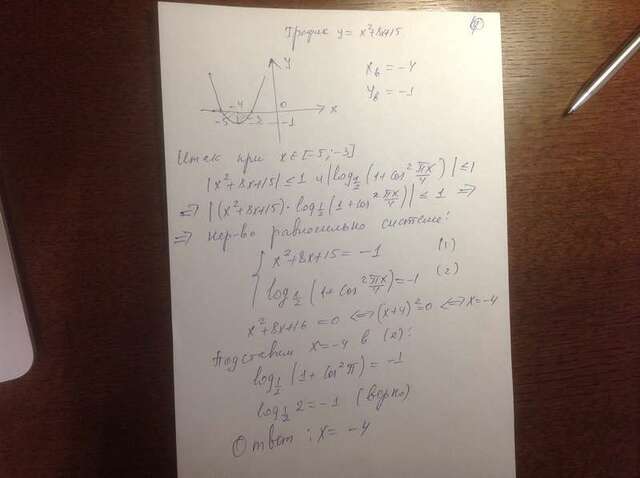 График y = x²+8x+15
y
x_в = -4
y_в = -1
-4 0 x
-5 -3 -1
Итак при x∈[-5;-3]
|x²+8x+15| ≤ 1 и |log_{1/2}(1+cos² πx/4)| ≤ 1
⇒ |(x²+8x+15)·log_{1/2}(1+cos² πx/4)| ≤ 1 ⇒
⇒ нер-во равносильно системе:
{ x²+8x+15 = -1 (1)
log_{1/2}(1+cos² πx/4) = -1 (2)
x²+8x+16 = 0 ⇔ (x+4)² = 0 ⇔ x = -4
Подставим x = -4 в (2):
log_{1/2}(1+cos²π) = -1
log_{1/2} 2 = -1 (верно)
Ответ: x = -4